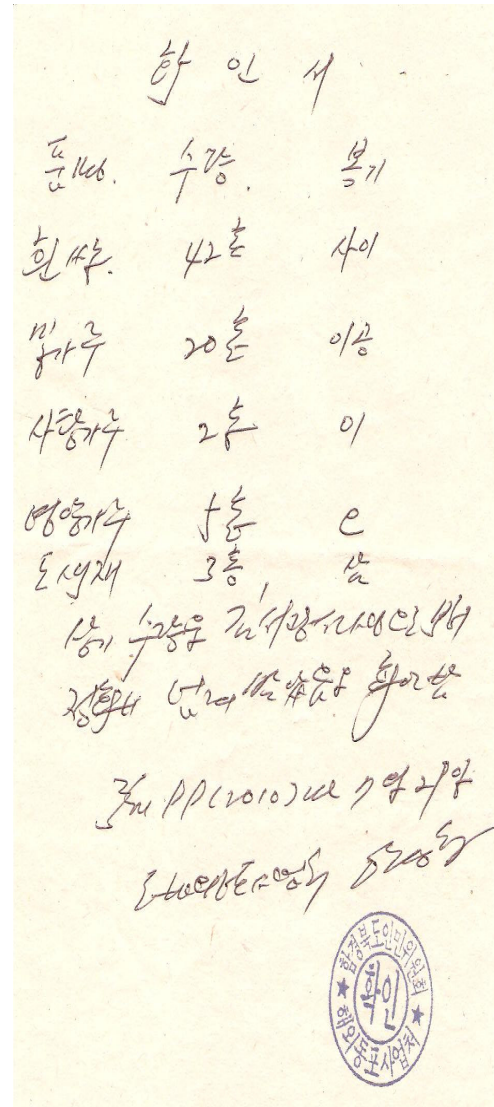 확 인 서
품명. 수량. 복기
흰쌀. 42톤 사이
밀가루 20톤 이공
사탕가루 2톤 이
영양가루 5톤 오
도색재 3톤 삼
상기 수량을
정확히 확인함
주체 99(2010)년 7월 21일
함경북도인민위원회
확인
해외동포사업처